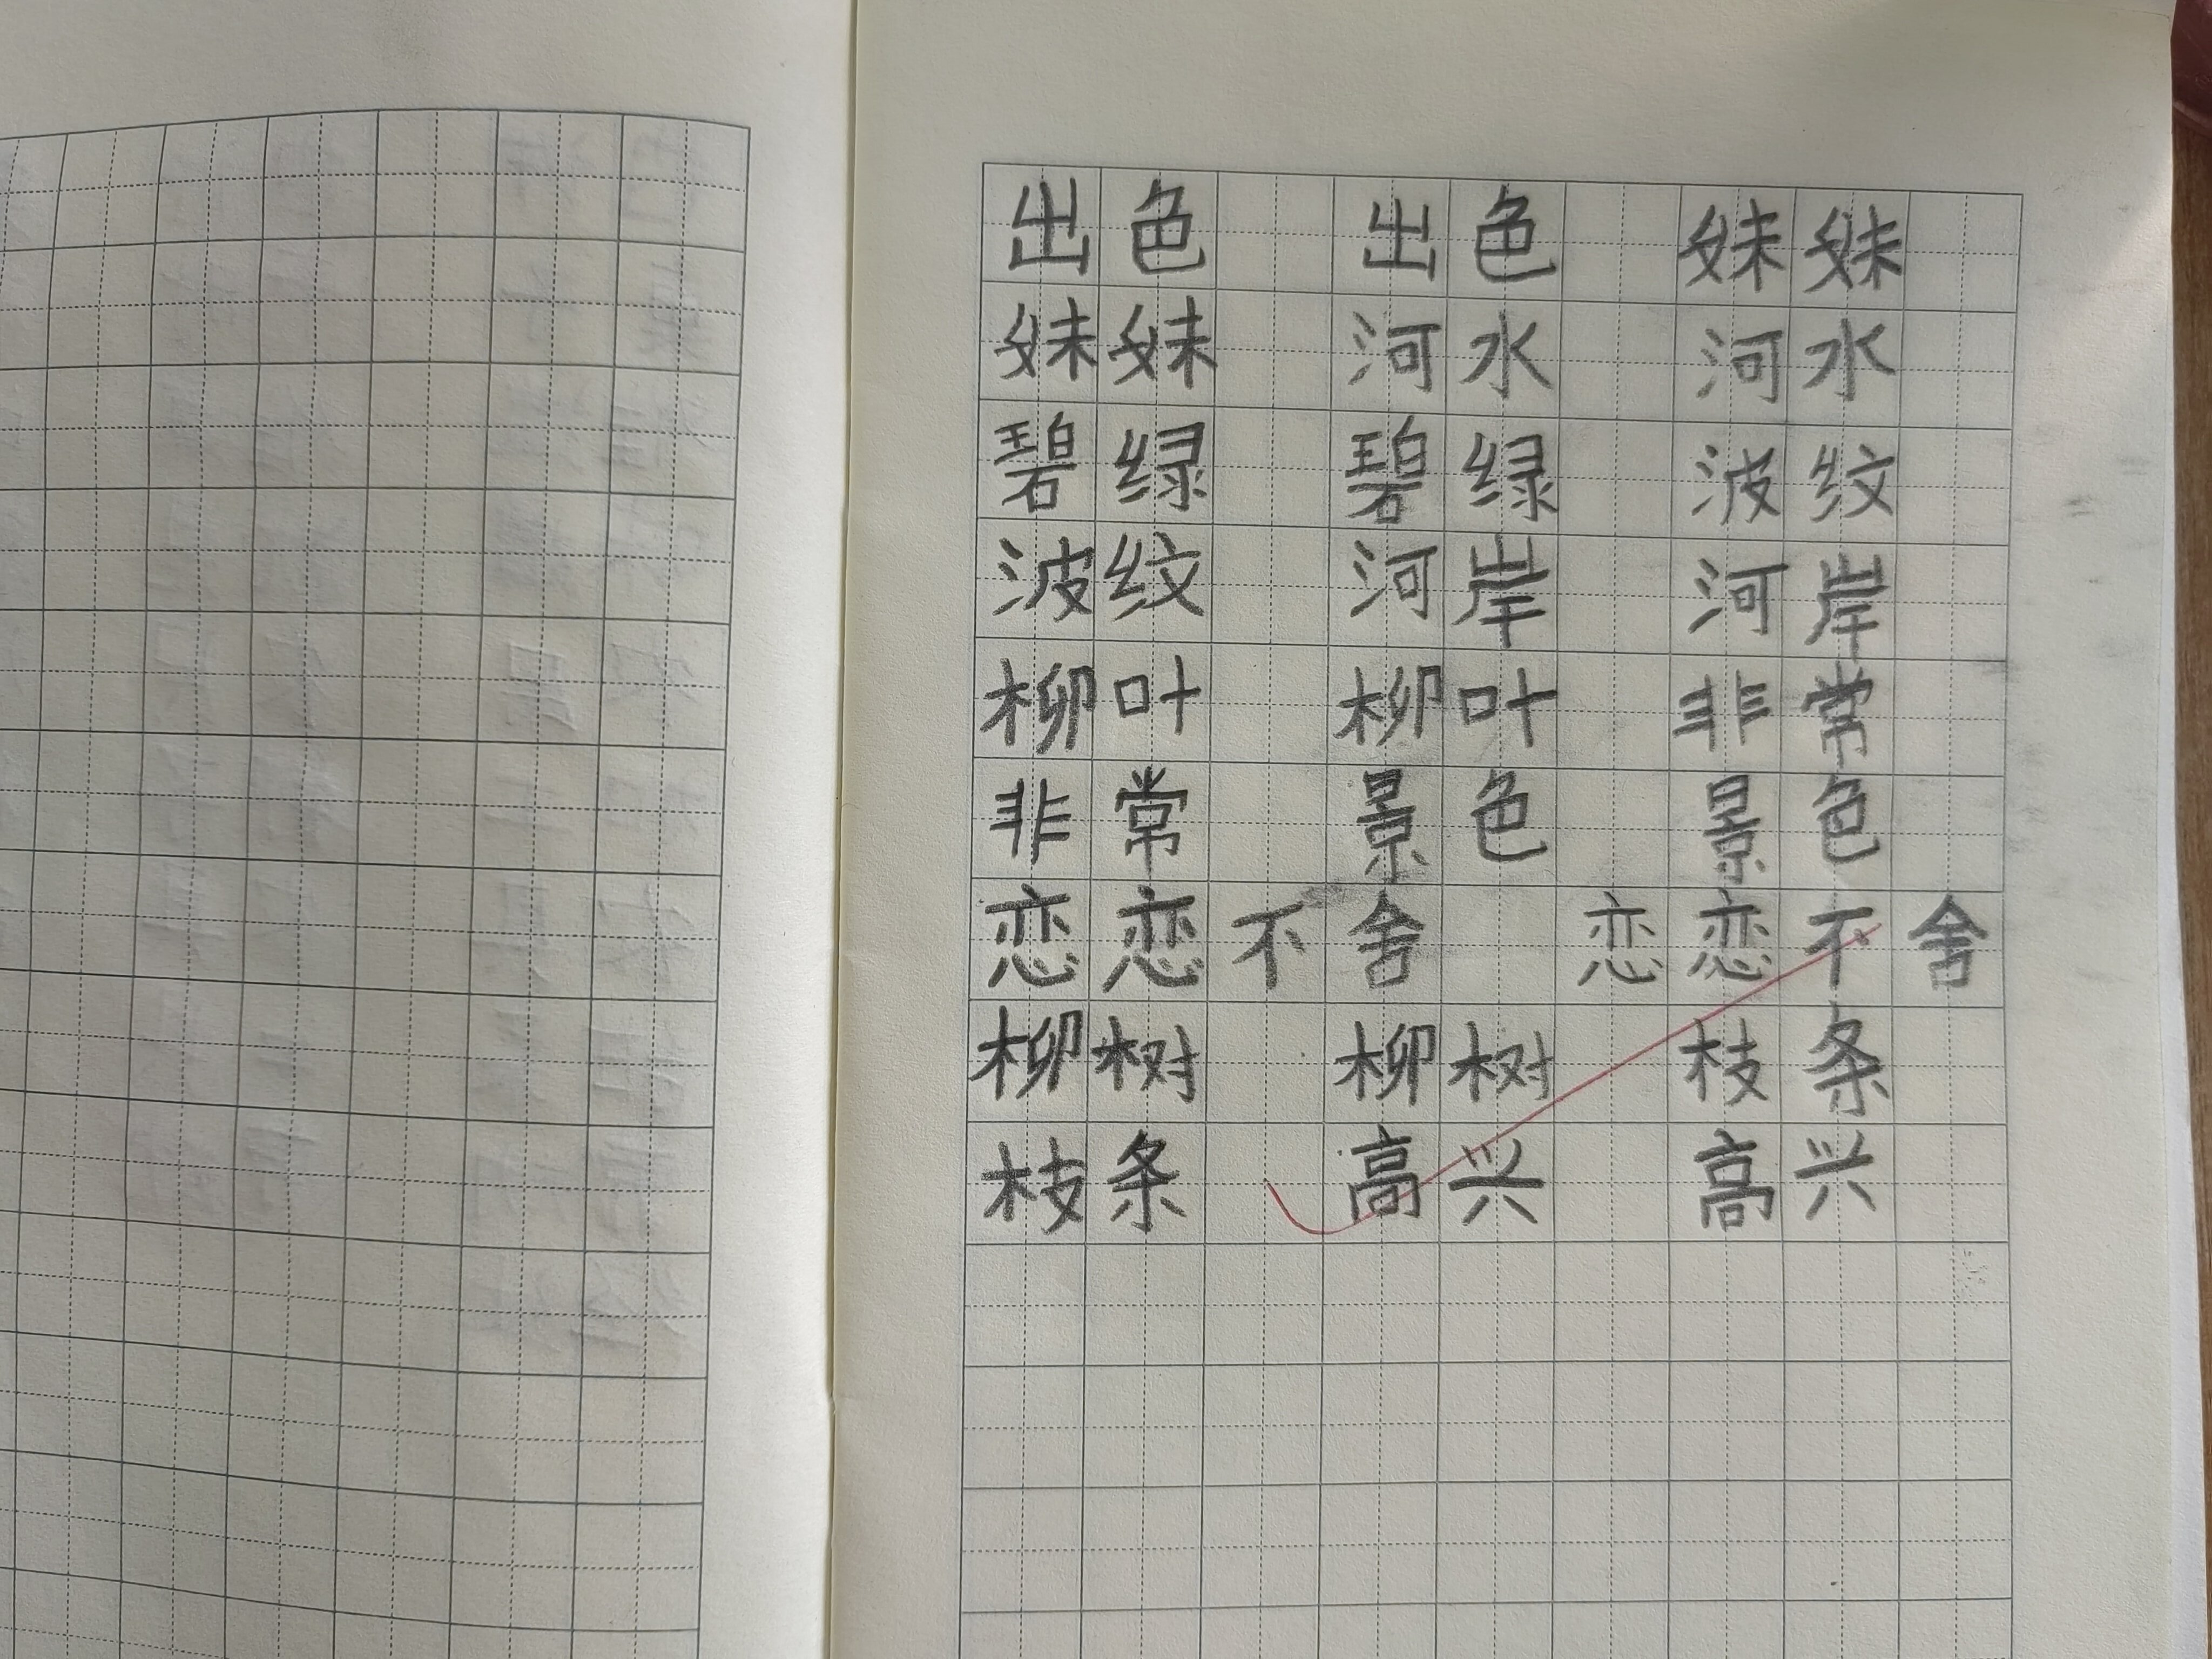 出色 出色 妹妹
妹妹 河水 河水
碧绿 碧绿 波纹
波纹 河岸 河岸
柳叶 柳叶 非常
非常 景色 景色
恋恋不舍 恋恋不舍
柳树 柳树 枝条
枝条 高兴 高兴